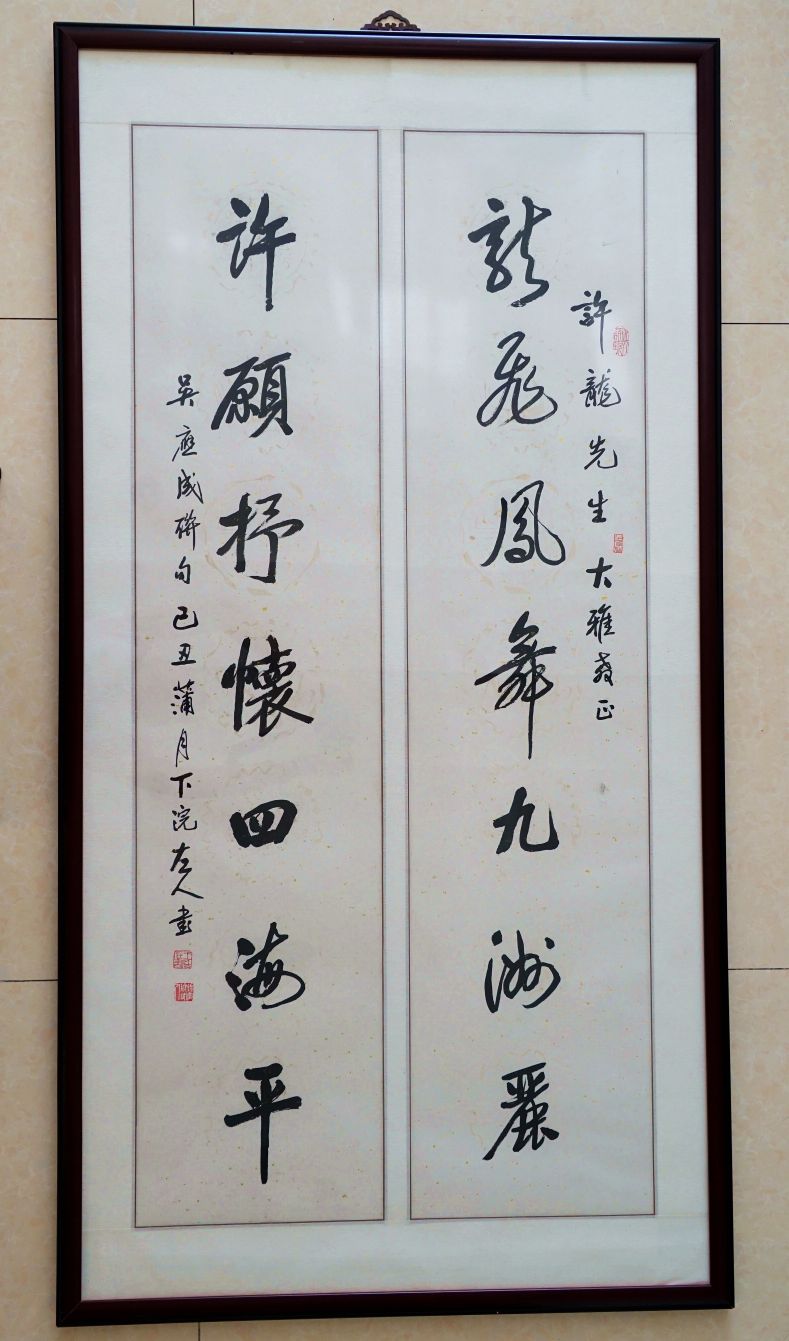 許龍先生大雅教正
龍飛鳳舞九洲麗
許願抒懷四海平
吳應成聯句己丑蒲月下浣左人書